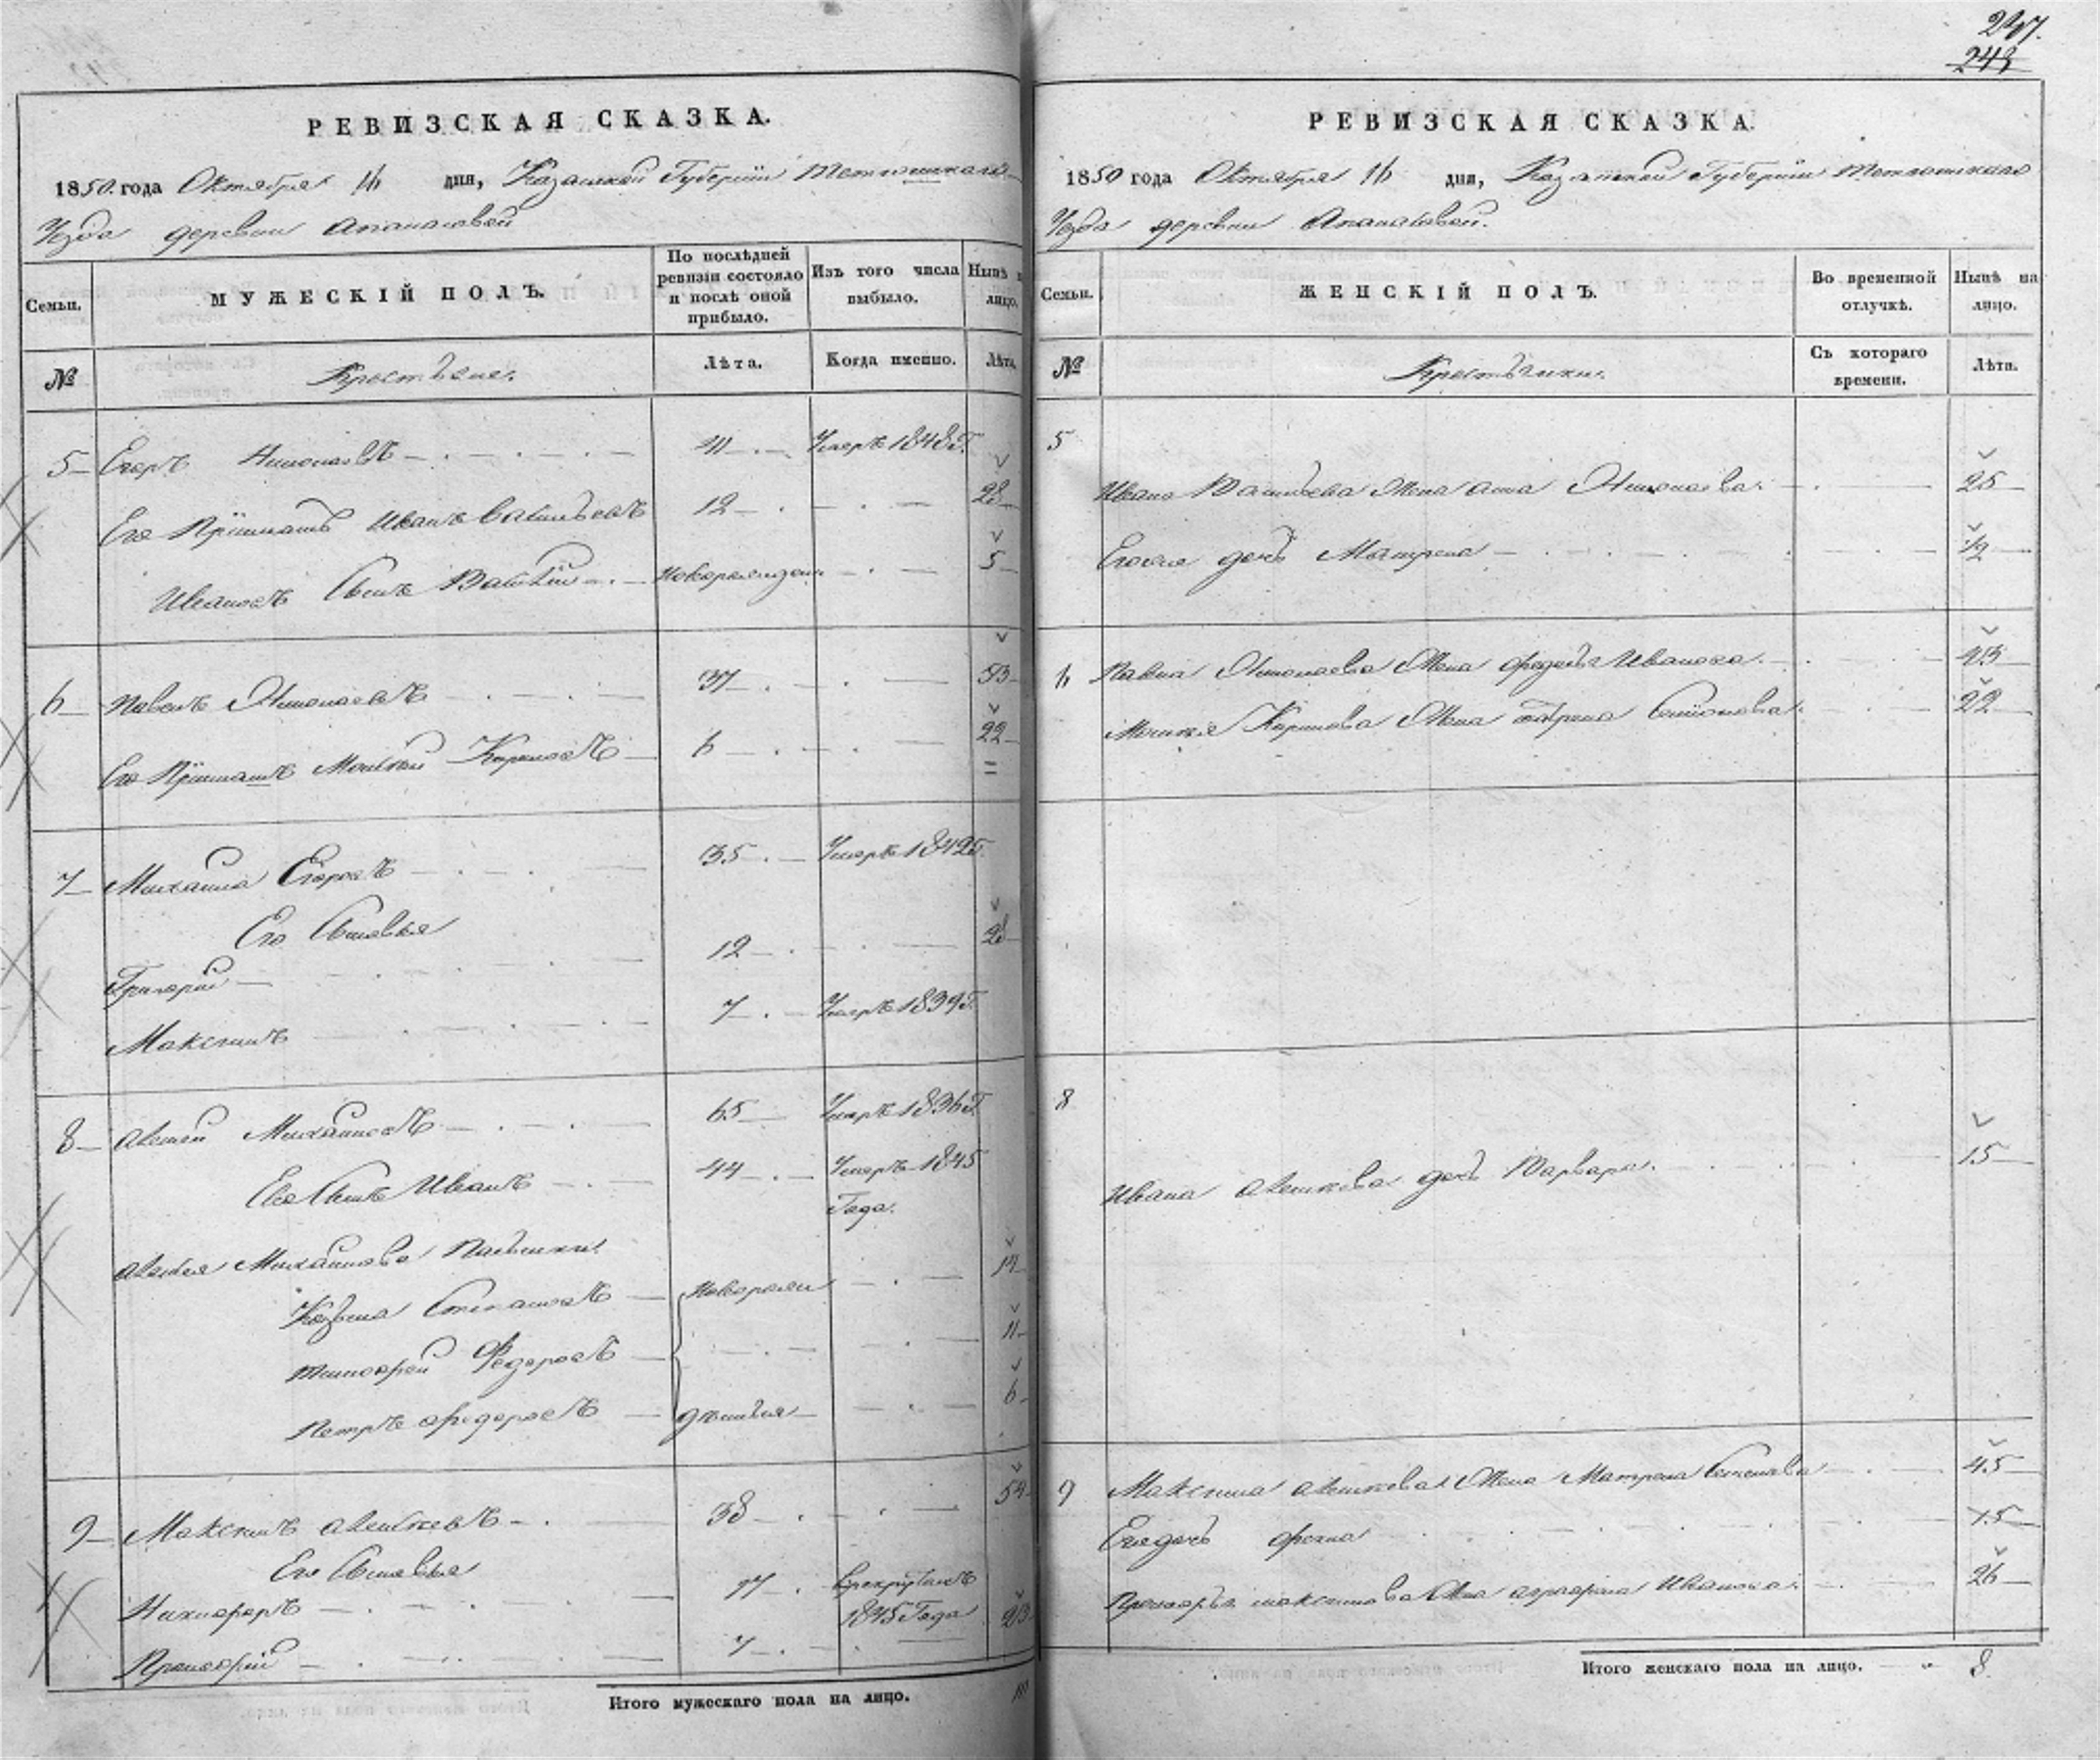 247.
243
РЕВИЗСКАЯ СКАЗКА.
1850 года Октября 16 дня, Казанской Губернiи Тетюшскаго
Уезда деревни Апанасовой
Семьи. МУЖЕСКIЙ ПОЛЪ. По послѣдней ревизiи состояло и послѣ оной прибыло. Изъ того числа выбыло. Нынѣ лицо.
№ Крестьяне. Лѣта. Когда именно. Лѣта.
5 Егоръ 41 Умеръ 1848 г.
Его Прiимашъ Иванъ Васильевъ 12 28
Ивановъ Сынъ Василiй новорожден 5
6 Павелъ 37 53
Его Прiимашъ Моисей Кириловъ 6 22
7 Михаила Егоровъ 35 Умеръ 1842 г.
Его Сыновья
Григорiй 12 28
Максимъ 7 Умеръ 1839 г.
8 Алексей Михайловъ 65 Умеръ 1836 г.
Его Сынъ Иванъ 44 Умеръ 1845
Года.
Алексея Михайлова
Козьма Степановъ новорожен 14
Тимофей Федоровъ 11
Петръ Федоровъ 6
9 Максимъ Алексеевъ 38 54
Его Сыновья
Никифоръ 17 Врекрутахъ
1845 Года
Прокофiй 7 23
Итого мужескаго пола на лицо. 10
РЕВИЗСКАЯ СКАЗКА.
1850 года Октября 16 дня, Казанской Губернiи Тетюшскаго
Уезда деревни Апанасовой.
Семьи. ЖЕНСКIЙ ПОЛЪ. Во временной отлучкѣ. Нынѣ на лицо.
№ Крестьянки. Съ котораго времени. Лѣта.
5
Ивана Васильева Жена Анна 25
Егоже дочь Матрена 1/2
6 Павла Жена Федосья Иванова 43
Моисея Кирилова Жена 22
8
Ивана Алексеева дочь Варвара. 15
9 Максима Алексеева Жена Матрена Семенова 45
Его дочь 15
Прокофья Максимова Жена Аграфена Иванова 26
Итого женскаго пола на лицо. 8.